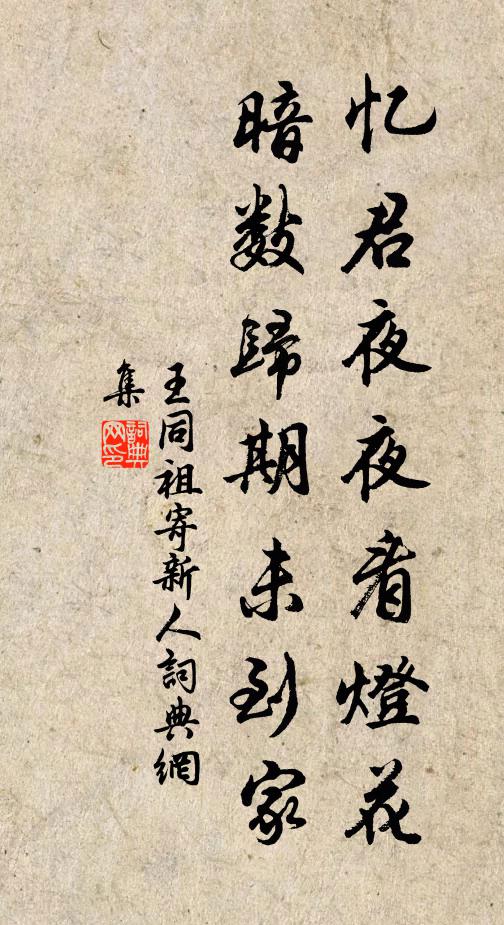 忆君夜夜看燈花
暗数歸期未到家
王同祖寄新人詞典網
集
詞典网印